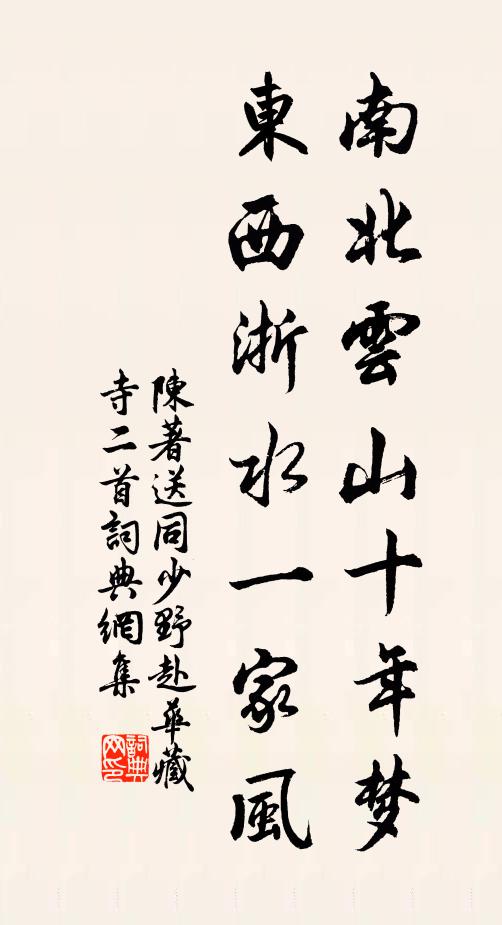 南北雲山十年梦
東西浙水一家風
陳著送同少野赴華藏
寺二首詞典網集
詞典網印